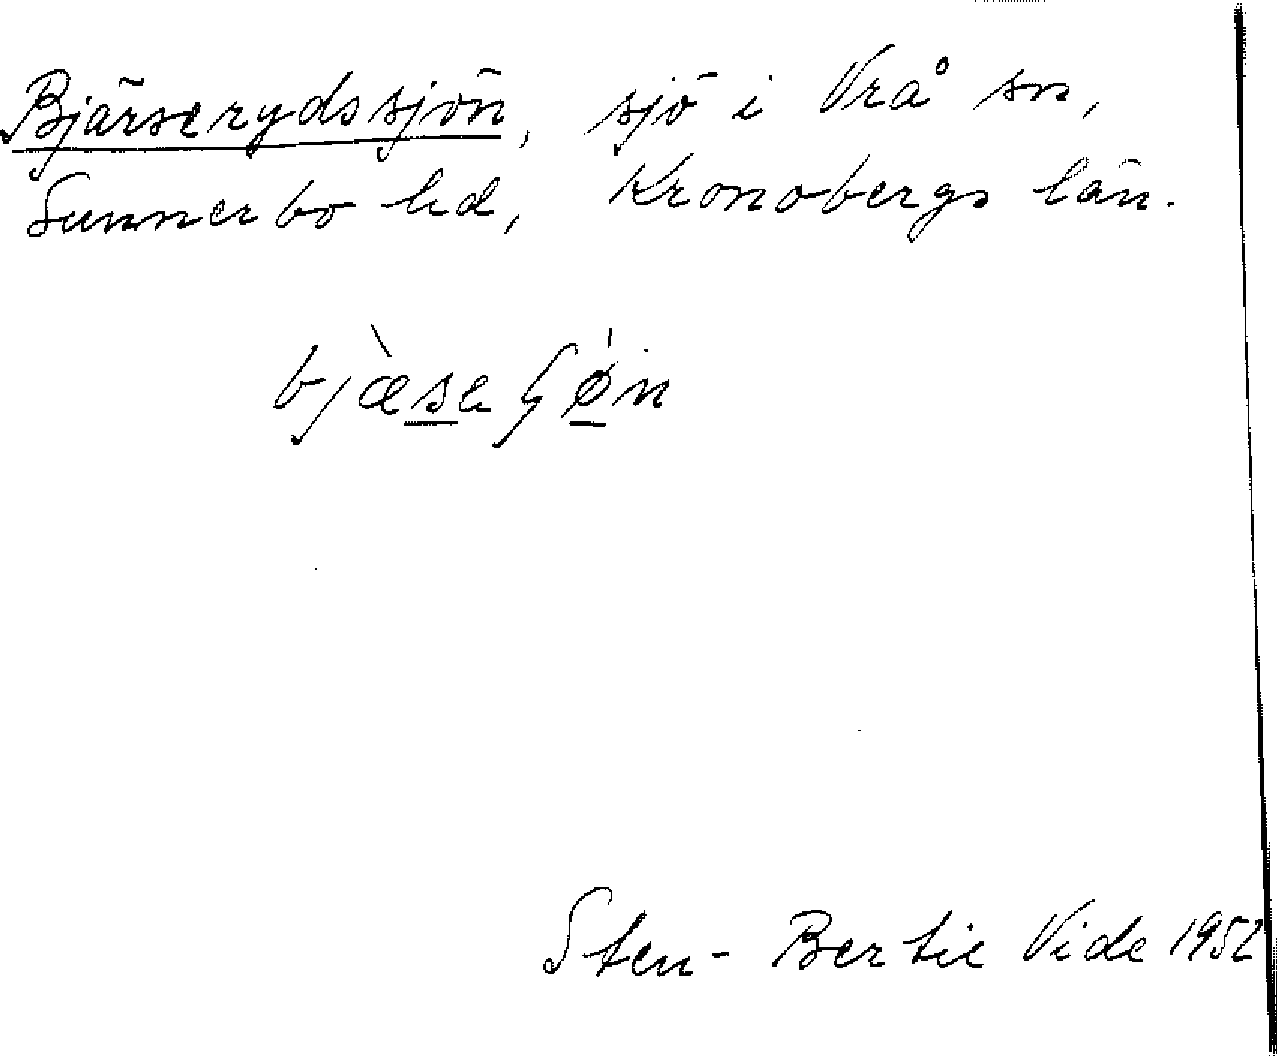 Bjärserydssjön, sjö i Vrå sn,
Sunnerbo hd, Kronobergs län.
bjæ̀seɧø̍n
Sten-Bertil Vide 1952